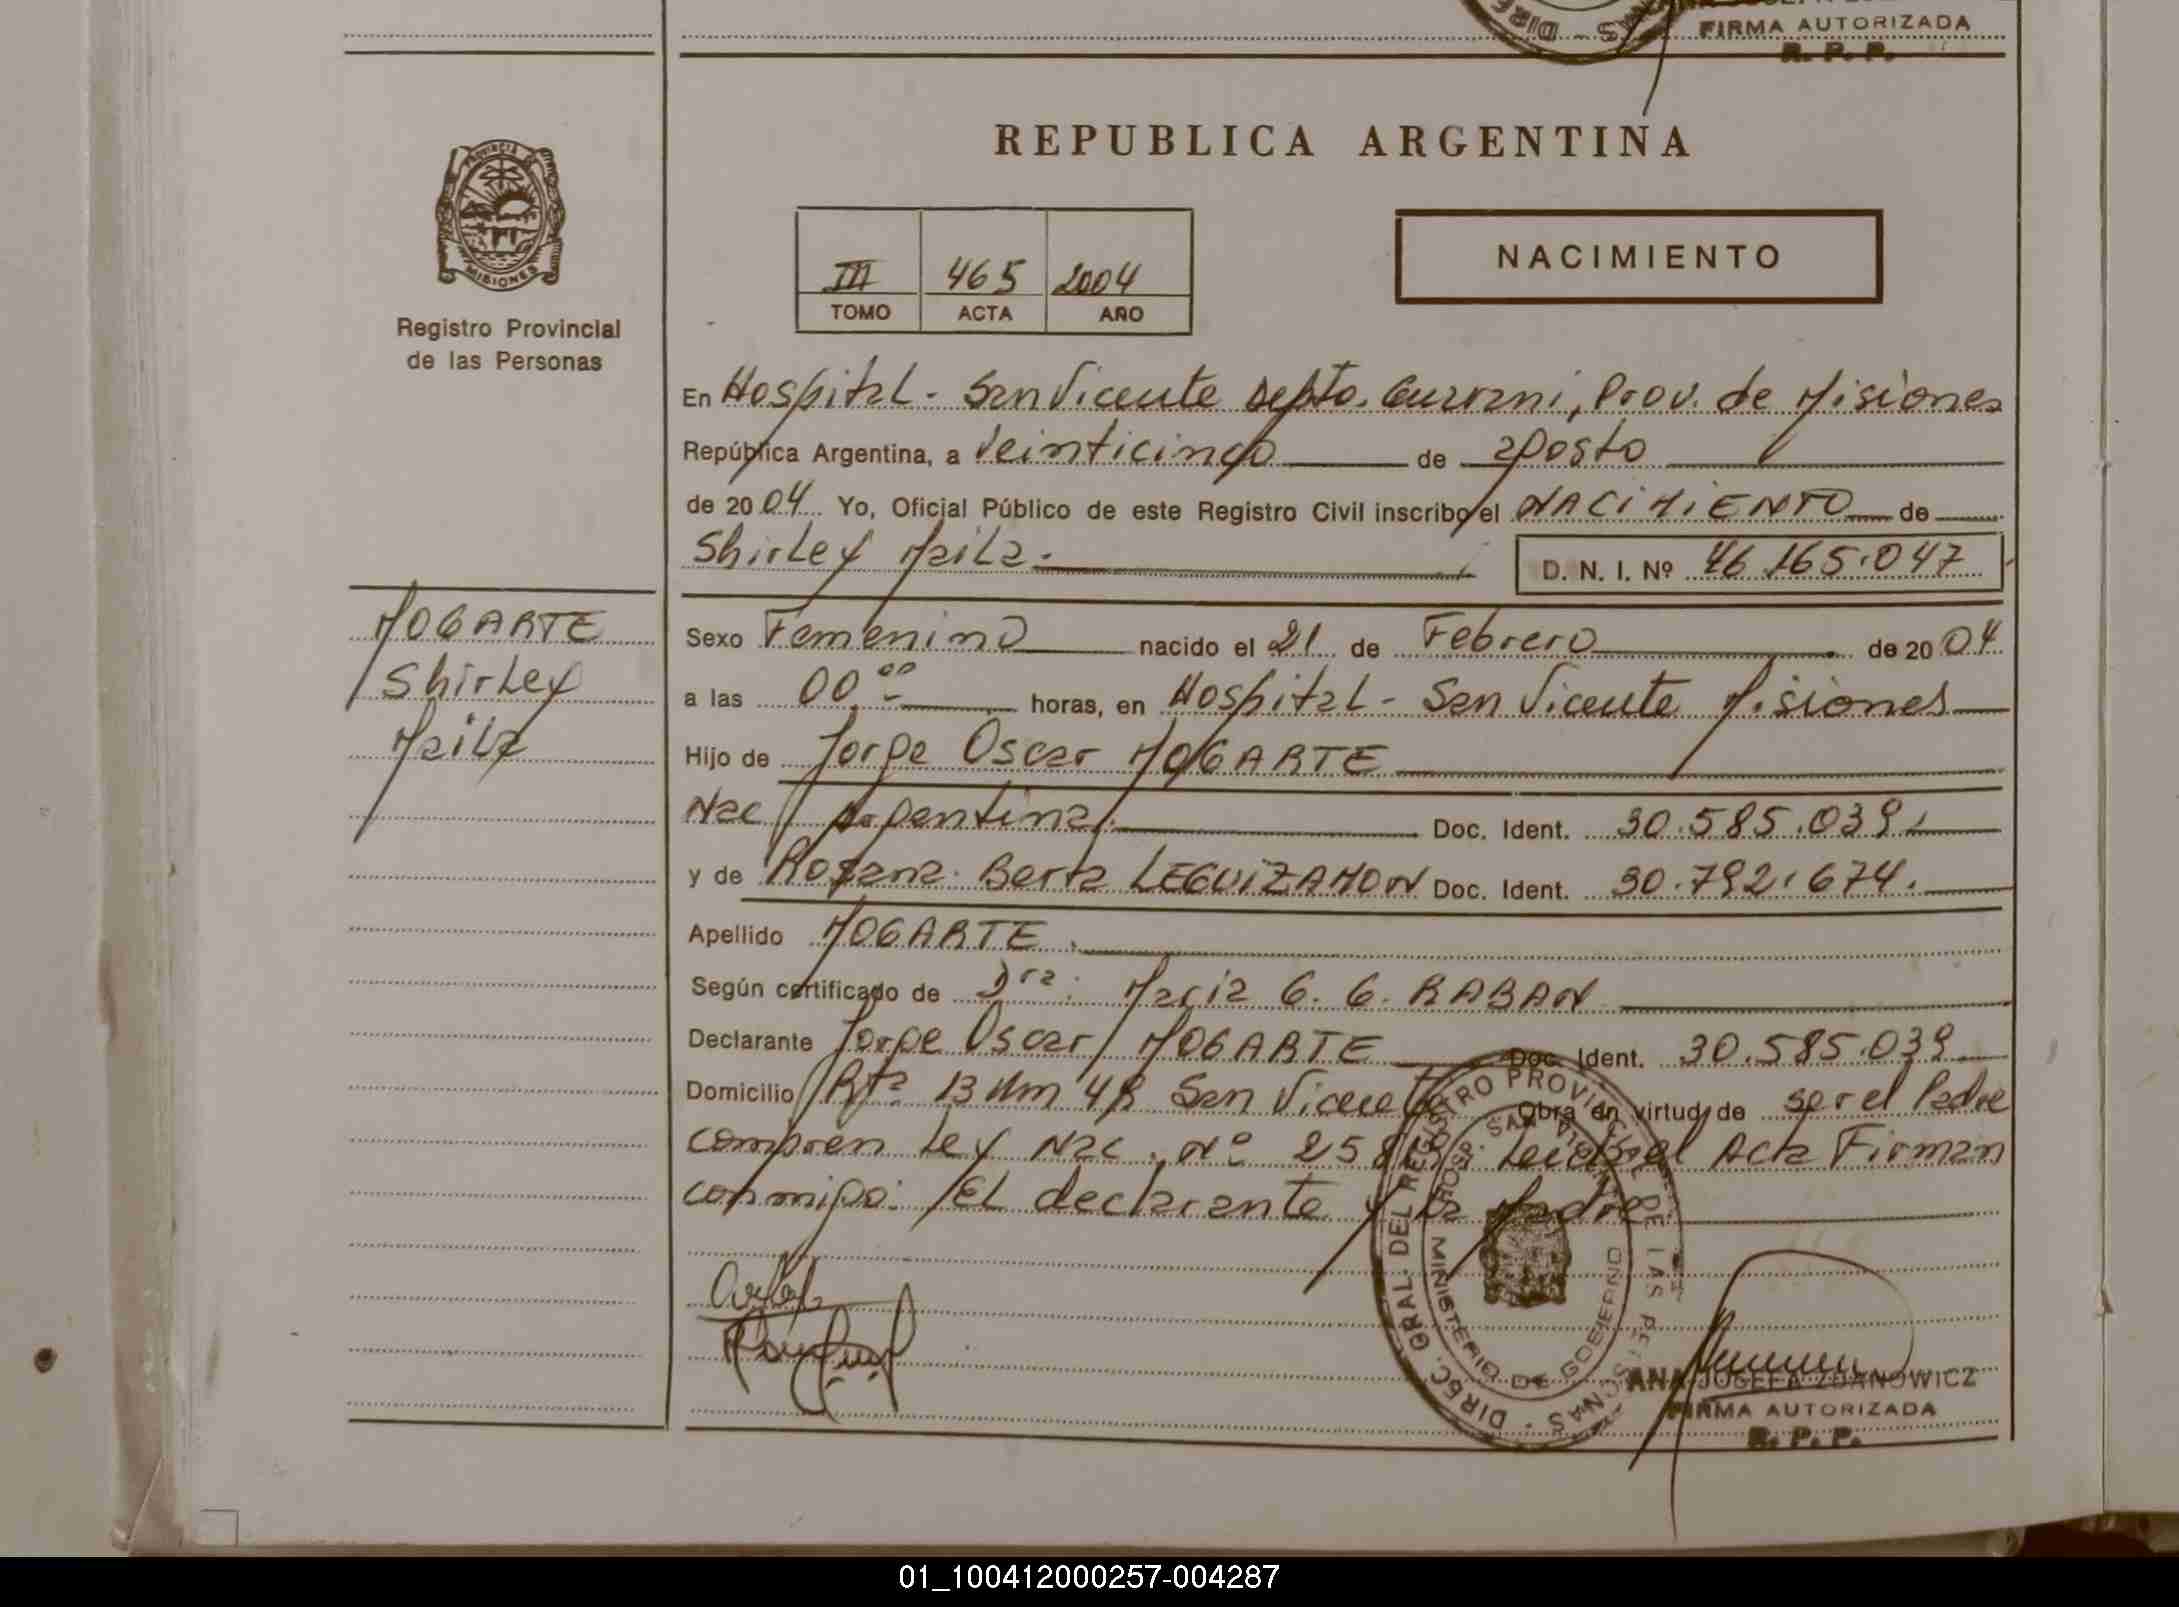 FIRMA AUTORIZADA
R. P. P.
REPUBLICA ARGENTINA
PROVINCIA DE
MISIONES
Registro Provincial
de las Personas
III 465 2004
TOMO ACTA AÑO
NACIMIENTO
En Hospital - San Vicente Depto. Guarani, Prov. de Misiones
República Argentina, a Veinticinco de agosto
de 2004 Yo, Oficial Público de este Registro Civil inscribo el NACIMIENTO de
Shirley Maila.
D. N. I. Nº 46.165.047
MOGARTE
Shirley
Maila
Sexo Femenino nacido el 21 de Febrero de 2004
a las 00.00 horas, en Hospital - San Vicente Misiones
Hijo de Jorge Oscar MOGARTE
Nac Argentina. Doc. Ident. 30.585.039.
y de Rosana Berta LEGUIZAMON Doc. Ident. 30.792.674.
Apellido MOGARTE.
Según certificado de Dra. Maria G. G. RABAN
Declarante Jorge Oscar MOGARTE Doc. Ident. 30.585.039
Domicilio Rta 13 Km 48 San Vicente Obra en virtud de ser el Padre
Ley Nac. Nº Acta Firman
conmigo: El declarante y la Madre.
DIREC. GRAL. DEL REGISTRO PROVINCIAL DE LAS PERSONAS
HOSP. SAN VICENTE
MINISTERIO DE GOBIERNO
ANA JOSEFA ZDANOWICZ
FIRMA AUTORIZADA
R. P. P.
01_100412000257-004287